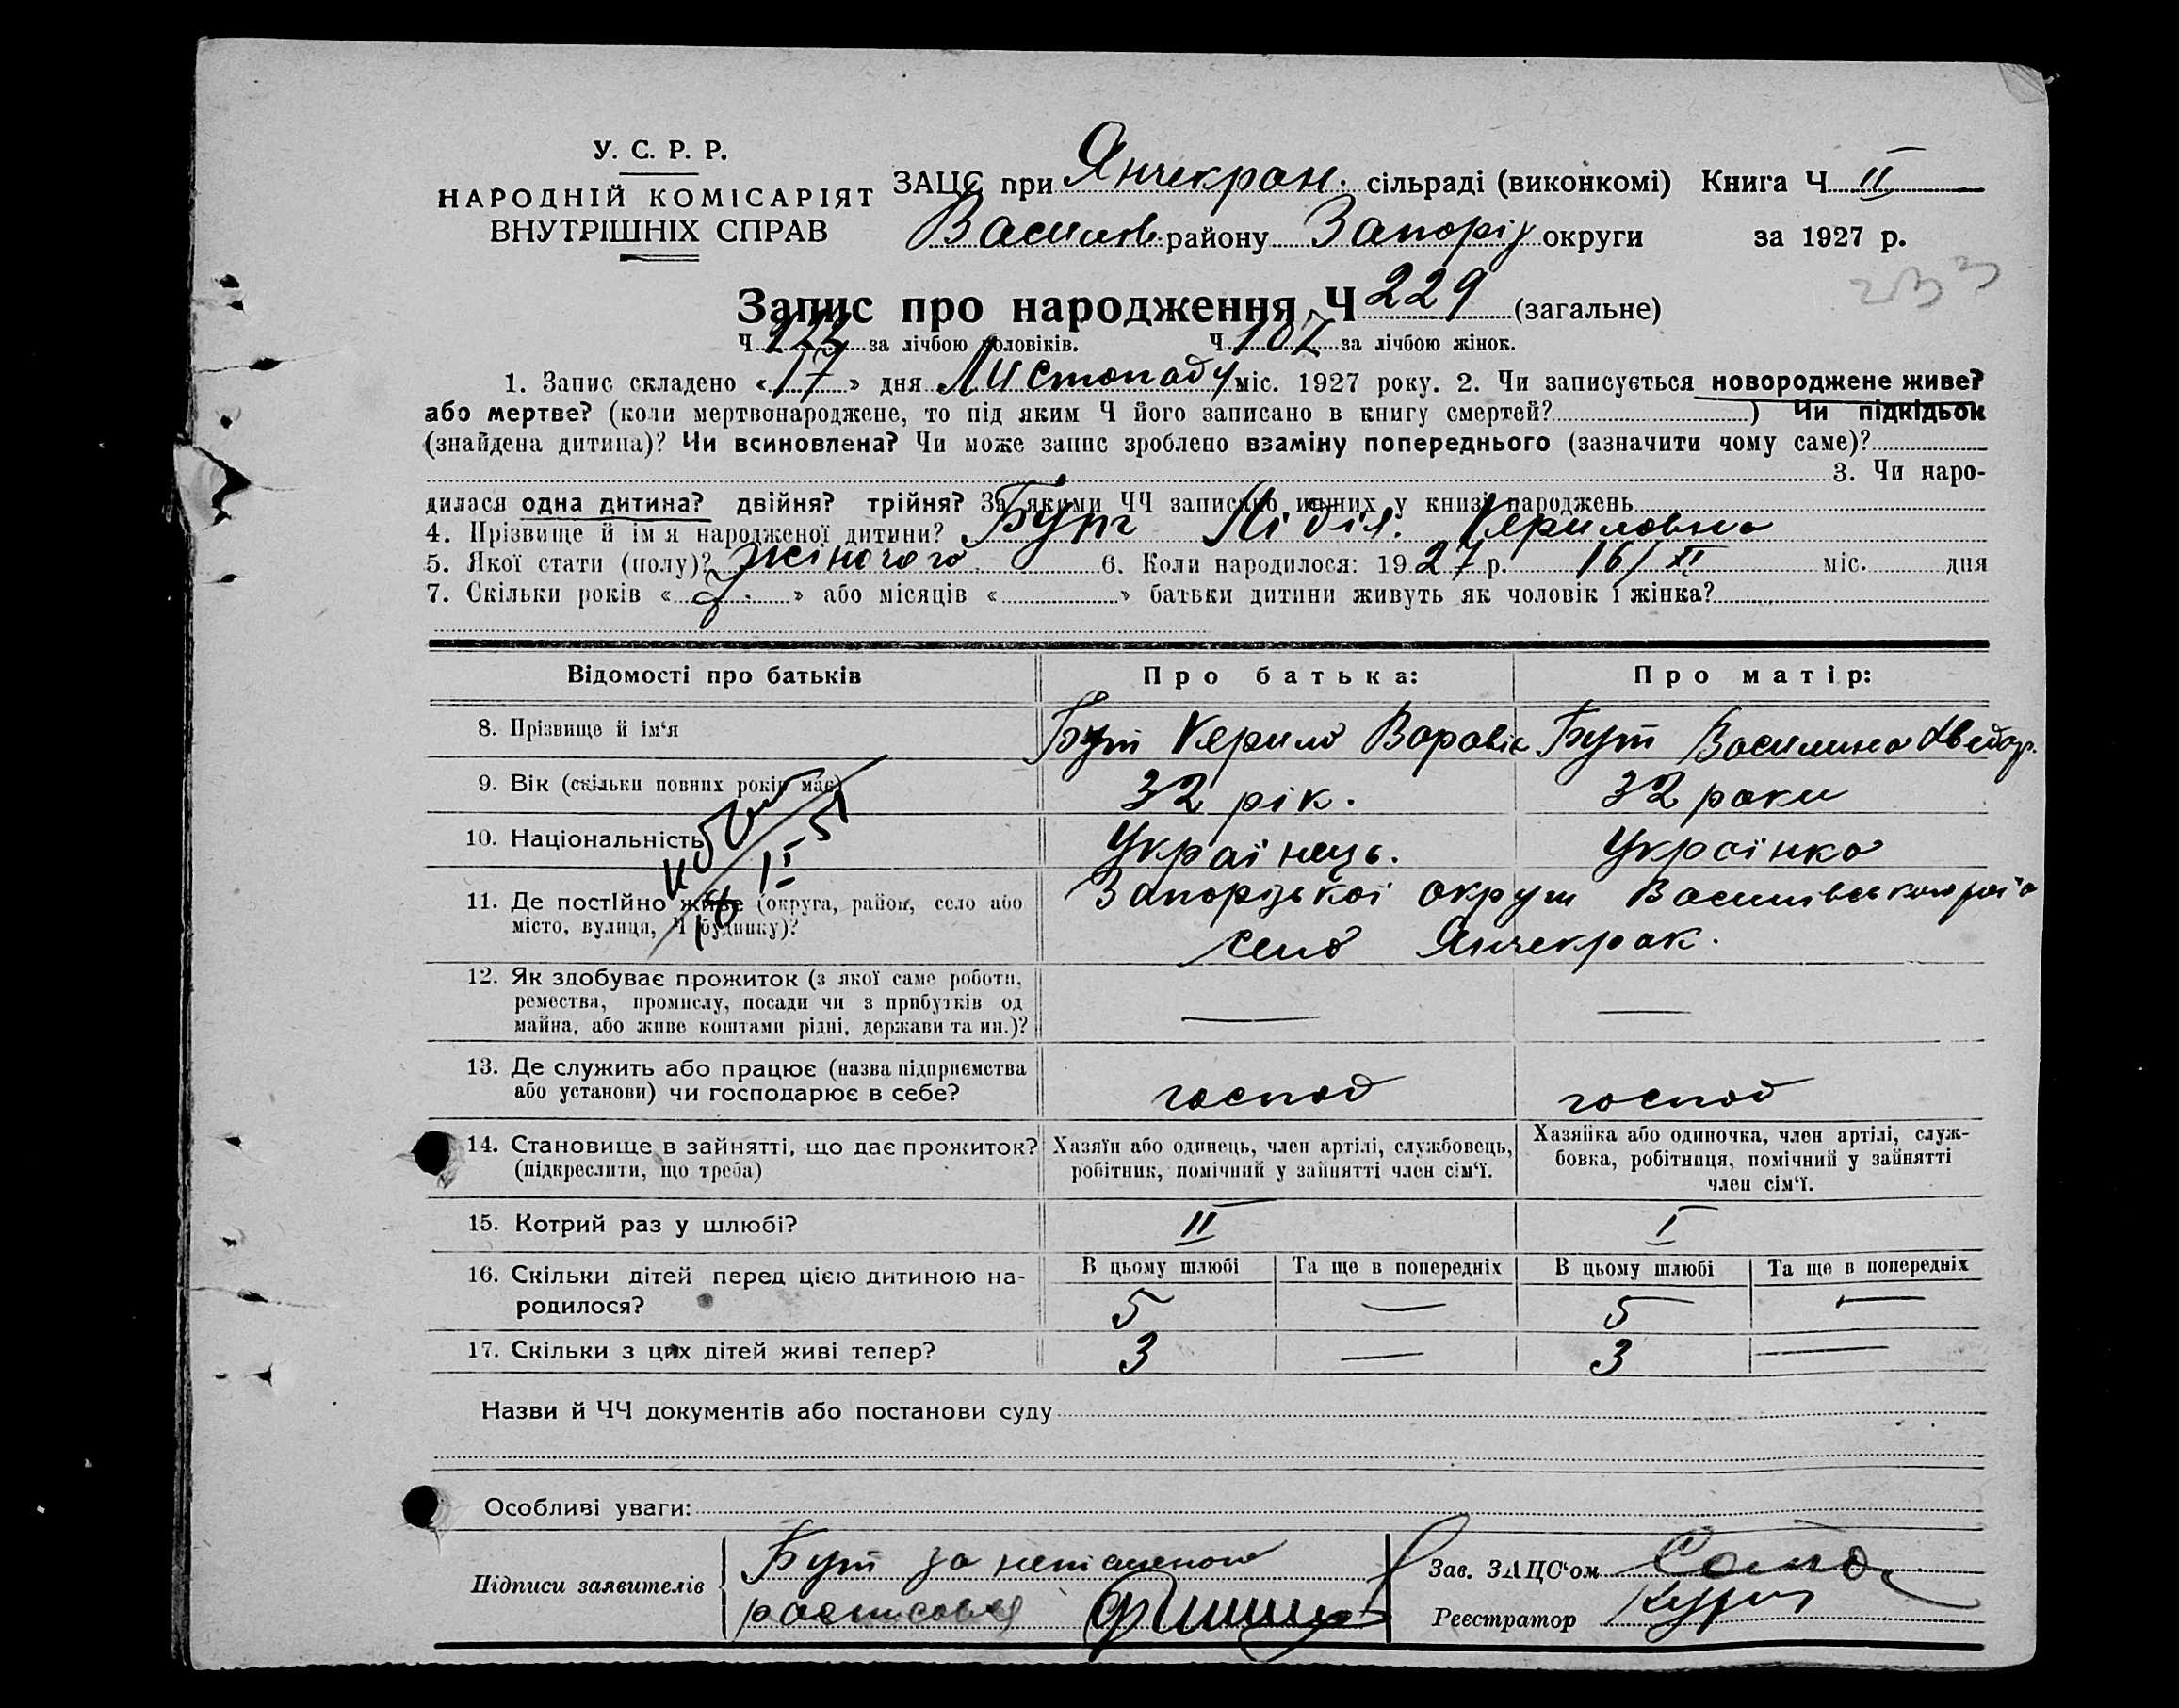 У. С. Р. Р.
НАРОДНІЙ КОМІСАРІЯТ
ВНУТРІШНІХ СПРАВ
ЗАЦС при Янчекрак. сільраді (виконкомі) Книга Ч II
Василів. району Запоріз округи за 1927 р.
Запис про народження Ч 229 (загальне)
Ч 122 за лічбою чоловіків. Ч 107 за лічбою жінок.
1. Запис складено « 17 » дня Листопаду міс. 1927 року. 2. Чи записується новороджене живе?
або мертве? (коли мертвонароджене, то під яким Ч його записано в книгу смертей? ) Чи підкідьок
(знайдена дитина)? Чи всиновлена? Чи може запис зроблено взаміну попереднього (зазначити чому саме)?
3. Чи наро-
дилася одна дитина? двійня? трійня? За якими ЧЧ записано инших у книзі народжень
4. Прізвище й ім я народженої дитини? Бут Лідія. Кериловна
5. Якої стати (полу)? жіночого 6. Коли народилося: 1927 р. 16/XI міс. дня
7. Скільки років « » або місяців « » батьки дитини живуть як чоловік і жінка?
Відомості про батьків Про батька: Про матір:
8. Прізвище й ім'я Бут Керило Варавіє Бут Василина Хведор.
9. Вік (скільки повних років має) 32 рік. 32 роки
10. Національність Українець. Українка
11. Де постійно живе (округа, район, село або Запорізької округи Василівського рай
місто, вулиця, Ч будинку)? село Янчекрак.
18 II 51
12. Як здобуває прожиток (з якої саме роботи,
ремества, промислу, посади чи з прибутків од
майна, або живе коштами рідні, держави та ин.)? — —
13. Де служить або працює (назва підприємства
або установи) чи господарює в себе? господ господ
14. Становище в зайнятті, що дає прожиток? Хазяїн або одинець, член артілі, службовець, Хазяйка або одиночка, член артілі, служ-
(підкреслити, що треба) робітник, помічний у зайнятті член сім'ї. бовка, робітниця, помічний у зайнятті
член сім'ї.
15. Котрий раз у шлюбі? II I
16. Скільки дітей перед цією дитиною на- В цьому шлюбі Та ще в попередніх В цьому шлюбі Та ще в попередніх
родилося? 5 — 5 —
17. Скільки з цих дітей живі тепер? 3 — 3 —
Назви й ЧЧ документів або постанови суду
Особливі уваги:
Підписи заявителів Бут за неписьменого Зав. ЗАЦС'ом
расписався Реєстратор